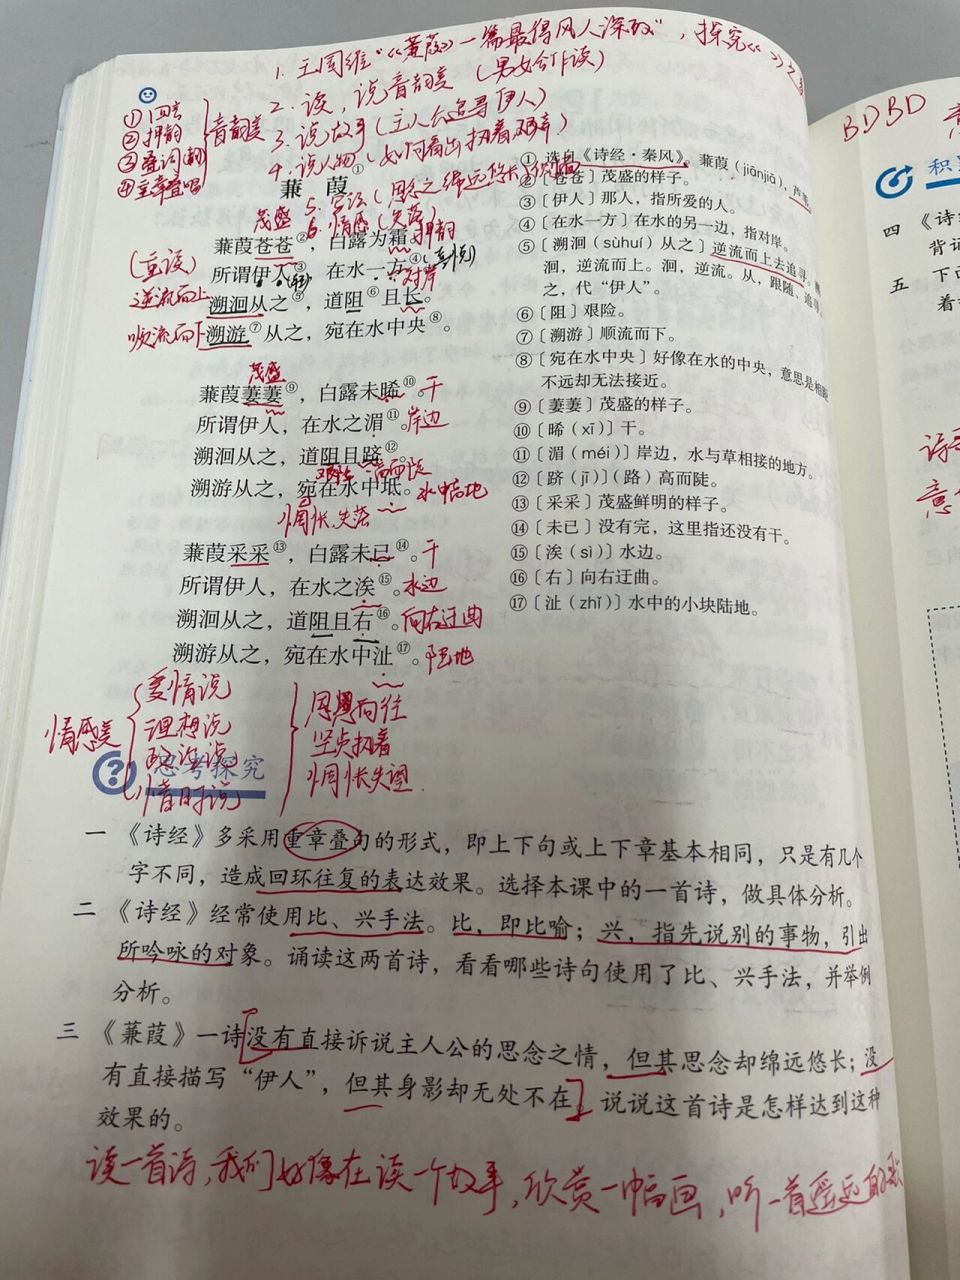 1. 王国维"《蒹葭》一篇最得风人深致"，探究《》之美
2. 读，说音韵美（男女合作读）
3. 说故事（主人公追寻伊人）
4. 说人物（如何看出执着
① 四言
② 押韵
③ 叠词
④ 重章叠唱
音韵美
蒹葭①
6. 情感（失落）
茂盛
蒹葭苍苍②，白露为霜。押韵
（重读）
所谓伊人③，在水一方④。
逆流而上
对岸
溯洄从之⑤，道阻⑥且长。
顺流而下
溯游⑦从之，宛在水中央⑧。
茂盛
蒹葭萋萋⑨，白露未晞⑩。干
所谓伊人，在水之湄⑪。岸边
溯洄从之，道阻且跻⑫。
高而陡
溯游从之，宛在水中坻。水中高地
惆怅、失落
蒹葭采采⑬，白露未已⑭。干
所谓伊人，在水之涘⑮。水边
溯洄从之，道阻且右⑯。向右迂曲
溯游从之，宛在水中沚⑰。陆地
① 选自《诗经·秦风》。蒹葭（jiānjiā），芦
②〔苍苍〕茂盛的样子。
③〔伊人〕那人，指所爱的人。
④〔在水一方〕在水的另一边，指对岸。
⑤〔溯洄（sùhuí）从之〕逆流而上去追寻。
洄，逆流而上。洄，逆流。从，跟随、追寻。
之，代“伊人”。
⑥〔阻〕艰险。
⑦〔溯游〕顺流而下。
⑧〔宛在水中央〕好像在水的中央，意思是相距
不远却无法接近。
⑨〔萋萋〕茂盛的样子。
⑩〔晞（xī）〕干。
⑪〔湄（méi）〕岸边，水与草相接的地方。
⑫〔跻（jī）〕（路）高而陡。
⑬〔采采〕茂盛鲜明的样子。
⑭〔未已〕没有完，这里指还没有干。
⑮〔涘（sì）〕水边。
⑯〔右〕向右迂曲。
⑰〔沚（zhǐ）〕水中的小块陆地。
情感美
爱情说
理想说
政治说
惜时说
思慕向往
坚贞执着
惆怅失望
思考探究
一 《诗经》多采用重章叠句的形式，即上下句或上下章基本相同，只是有几个
字不同，造成回环往复的表达效果。选择本课中的一首诗，做具体分析。
二 《诗经》经常使用比、兴手法。比，即比喻；兴，指先说别的事物，引出
所吟咏的对象。诵读这两首诗，看看哪些诗句使用了比、兴手法，并举例
分析。
三 《蒹葭》一诗没有直接诉说主人公的思念之情，但其思念却绵远悠长；没
有直接描写“伊人”，但其身影却无处不在。说说这首诗是怎样达到这种
效果的。
读一首诗，我们好像在读一个故事，欣赏一幅画，听一首遥远的歌
BDBD
积
四 《诗
背诵
五 下面
着
诗
意